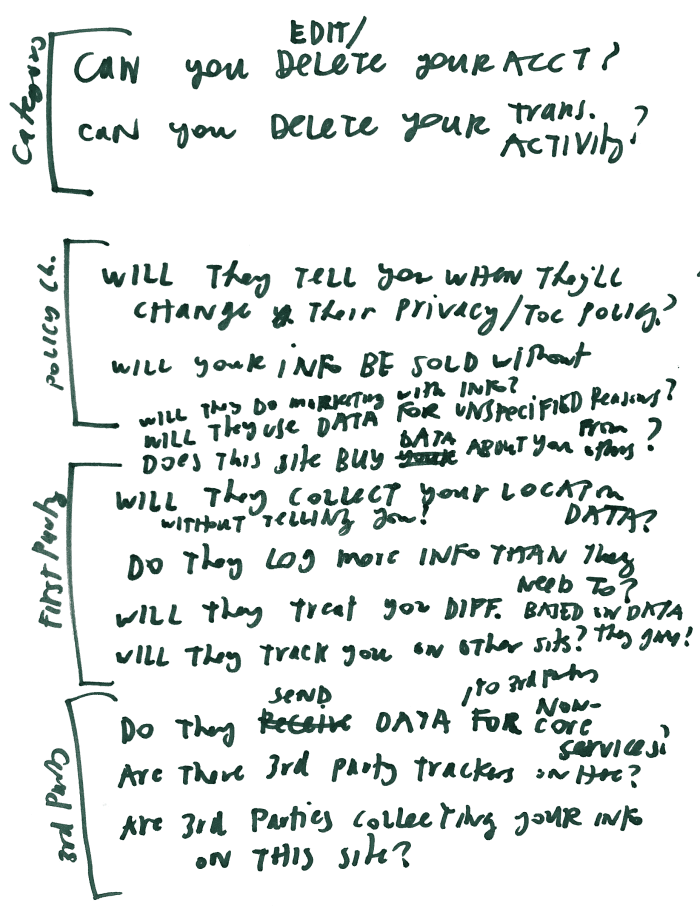 Category
EDIT/
CAN you DELETE your ACCT?
CAN you DELETE your Trans.
ACTIVITY?
POLICY Ch.
WILL They TELL you WHEN They'll
CHANGE Their Privacy/Toc Policy?
WILL your iNFO BE SOLD without
WILL They DO MARKETING with INFO?
WILL They use DATA FOR UNSpeciFIED Reasons?
DATA From
Does This site BUY your ABOUT you others?
First Party
WILL They COLLECT your LOCATion
WITHOUT TELLING you! DATA?
Do They LOG more INFO THAN They
NeeD To?
WILL They treat you DIFF. BASED on DATA
WILL They TRACK you on other sites? They gave!
3rd Party
SEND , to 3rd parties
Do They Receive DATA FOR NON-
core
services?
Are There 3rd party trackers on Here?
Are 3rd Parties collecting your info
on THIS site?